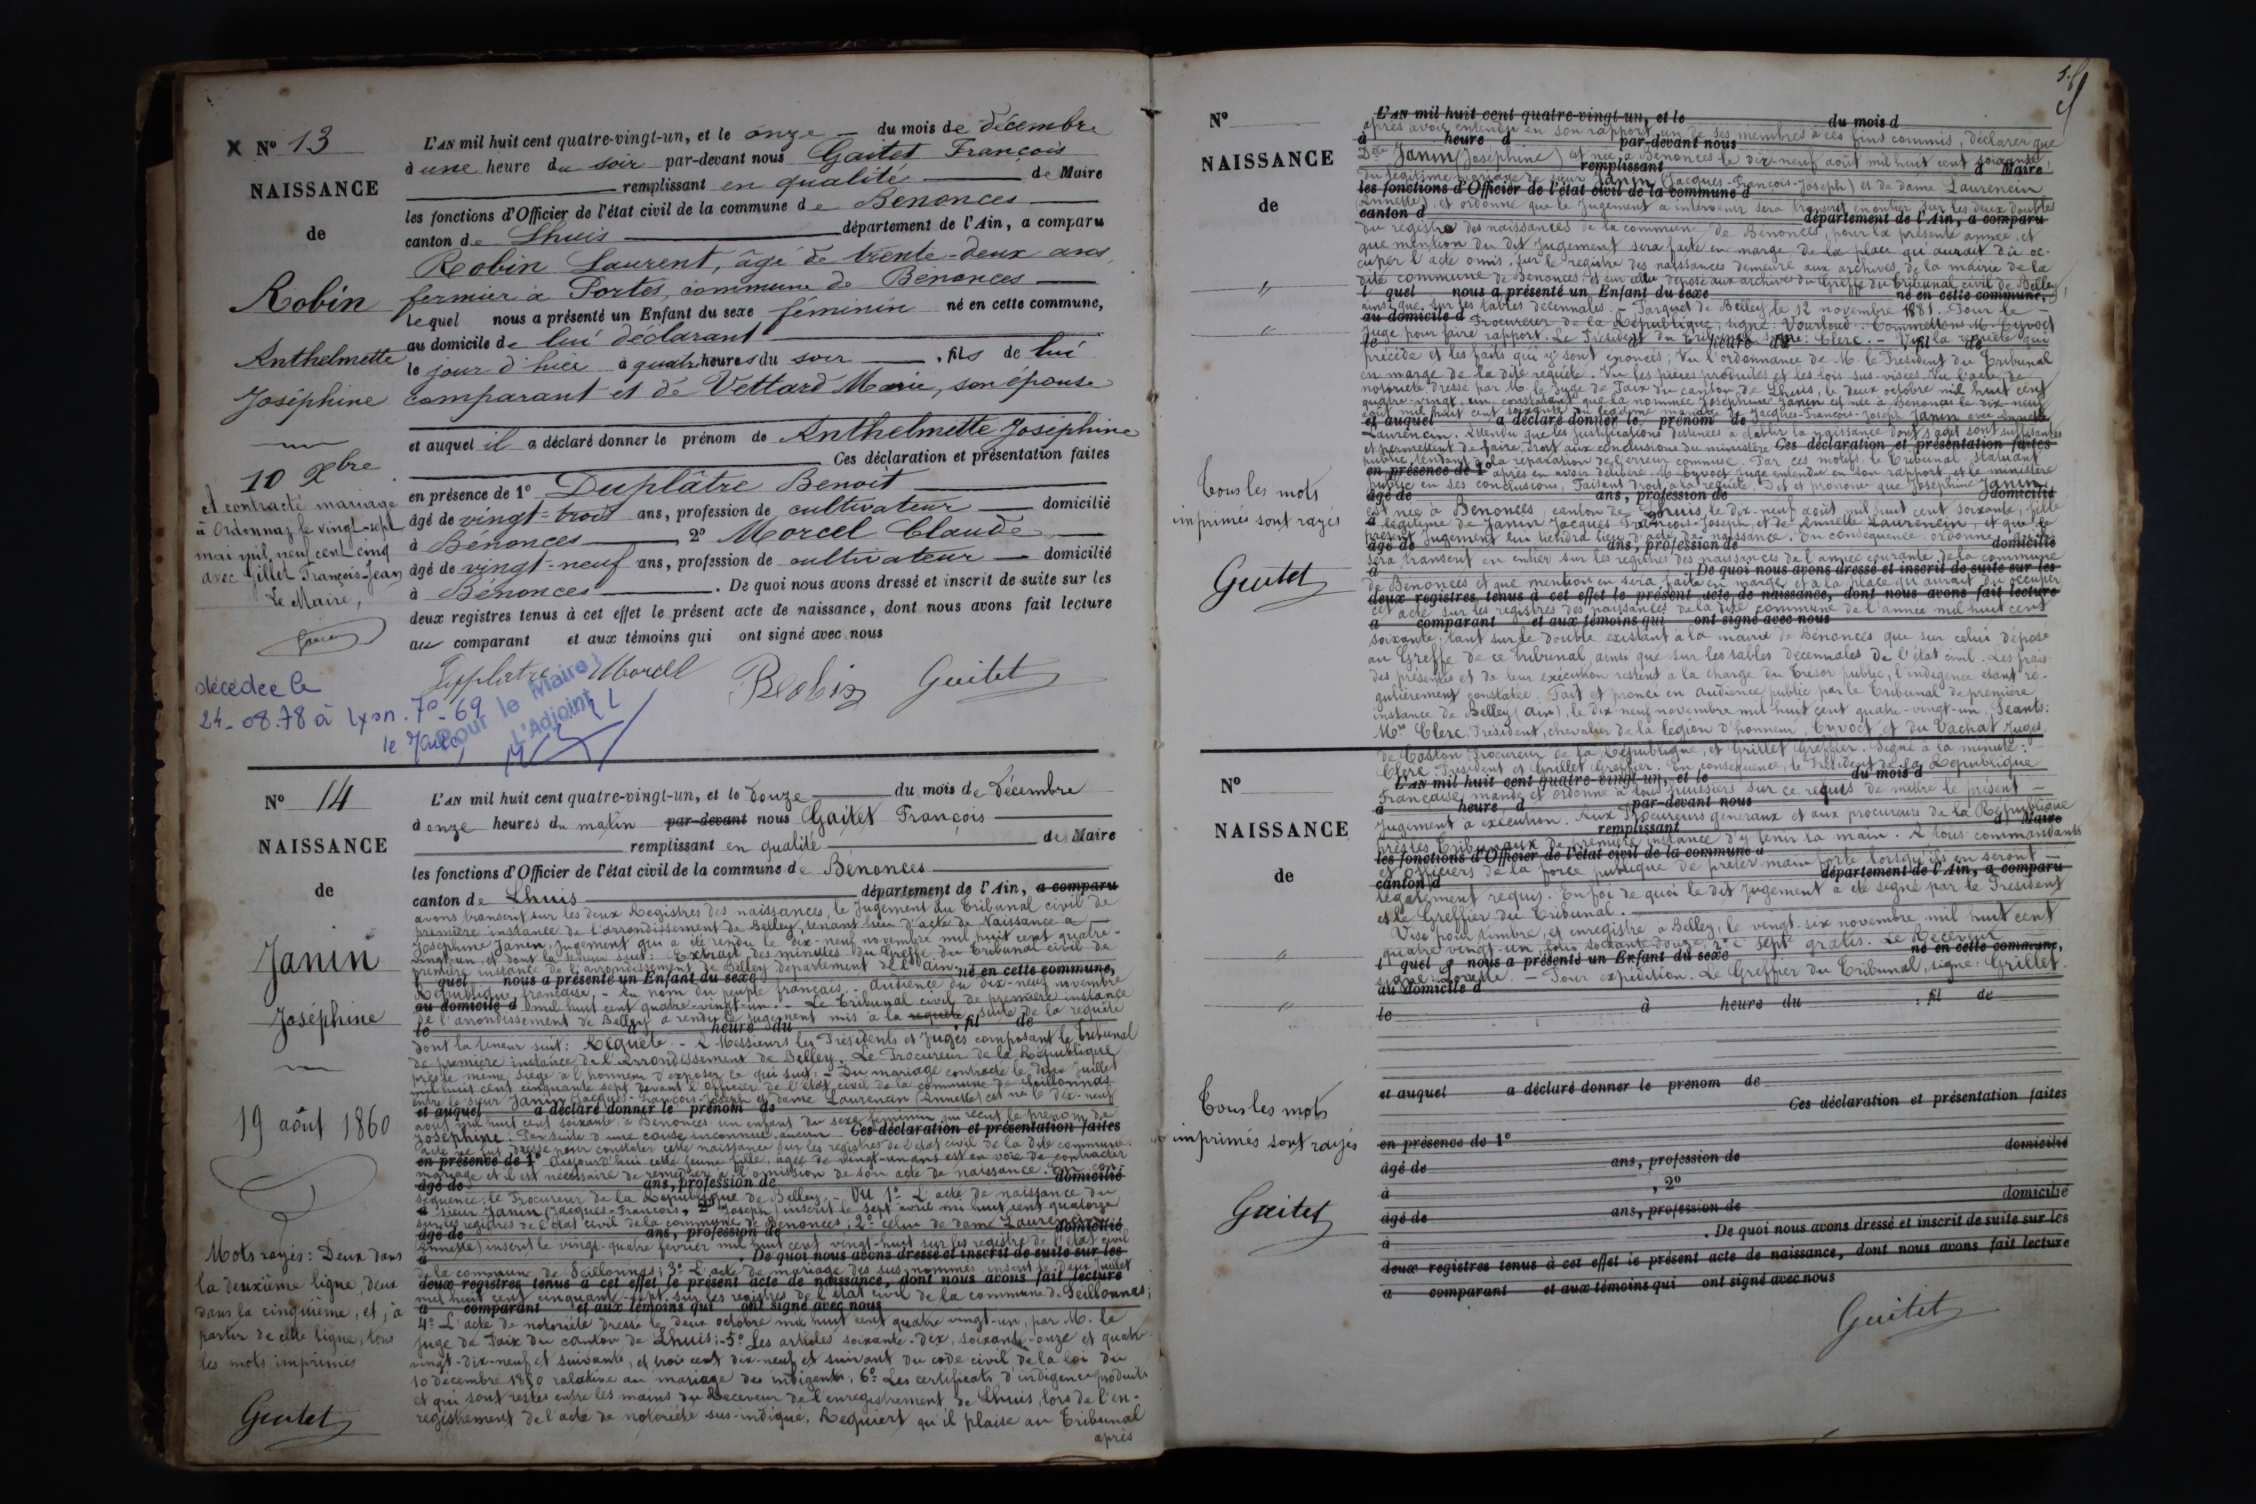 X Nº 13
NAISSANCE
de
Robin
Anthelmette
Joséphine
10 Xbre
A contracté mariage
à Ordonnaz le vingt-sept
mai mil neuf cent cinq
avec Gillet François-Jean
Le Maire,
décédée le
24-08.78 à Lyon. 7e-69
le Maire,
L'AN mil huit cent quatre-vingt-un, et le onze du mois de décembre
à une heure du soir par-devant nous Gaitet François
remplissant en qualité de Maire
les fonctions d'Officier de l'état civil de la commune de Bénonces
canton de Lhuis département de l'Ain, a comparu
Robin Laurent, âgé de trente-deux ans,
fermier à Portes, commune de Bénonces
lequel nous a présenté un Enfant du sexe féminin né en cette commune,
au domicile de lui déclarant
le jour d'hier à quatre heures du soir, fils de lui
comparant et de Vettard Marie, son épouse
et auquel il a déclaré donner le prénom de Anthelmette Joséphine
Ces déclaration et présentation faites
en présence de 1º Duplâtre Benoit
âgé de vingt-trois ans, profession de cultivateur domicilié
à Bénonces 2º Morcel Claude
âgé de vingt-neuf ans, profession de cultivateur domicilié
à Bénonces. De quoi nous avons dressé et inscrit de suite sur les
deux registres tenus à cet effet le présent acte de naissance, dont nous avons fait lecture
au comparant et aux témoins qui ont signé avec nous
Morcel Robin Gaitet
Pour le Maire:
L'Adjoint
Nº 14
NAISSANCE
de
Janin
Joséphine
19 août 1860
Mots rayés: Deux dans
la deuxième ligne, deux
dans la cinquième, et, à
partir de cette ligne, tous
les mots imprimés
Gaitet
L'AN mil huit cent quatre-vingt-un, et le douze du mois de décembre
à onze heures du matin par-devant nous Gaitet François
remplissant en qualité de Maire
les fonctions d'Officier de l'état civil de la commune de Bénonces
canton de Lhuis département de l'Ain, a comparu
avons transcrit sur les deux Registres des naissances, le Jugement du Tribunal civil de
première instance de l'arrondissement de Belley, tenant lieu d'acte de Naissance à
Joséphine Janin, Jugement qui a été rendu le dix-neuf novembre mil huit cent quatre-
vingt-un et dont la teneur suit: Extrait des minutes du Greffe du Tribunal civil de
première instance de l'arrondissement de Belley département de l'Ain.
l quel nous a présenté un Enfant du sexe né en cette commune,
République française, - Au nom du peuple français. - Audience du dix-neuf novembre
au domicile d mil huit cent quatre-vingt-un. - Le Tribunal civil de première instance
de l'arrondissement de Belley a rendu le jugement mis à la requête suite de la requête
le à heure du , fil de
dont la teneur suit: Requête. - A Messieurs les Présidents et Juges composant le Tribunal
de première instance de l'Arrondissement de Belley. Le Procureur de la République
près le même siège a l'honneur d'exposer ce qui suit: - Du mariage contracté le deux Juillet
mil huit cent cinquante sept devant l'officier de l'état civil de la commune de Seillonnas
entre le sieur Janin (Jacques-François-Joseph) et dame Laurencin (Annette) est né le dix-neuf
et auquel a déclaré donner le prénom de
août mil huit cent soixante, à Bénonces un enfant du sexe féminin qui reçut le prénom de
Joséphine. Par suite d'une cause inconnue, aucun Ces déclaration et présentation faites
acte ne fut dressé pour constater cette naissance sur les registres de l'état civil de la dite commune.
en présence de 1º Aujourd'hui cette jeune fille, âgée de vingt-un ans est en voie de contracter
mariage et il est nécessaire de remédier à l'omission de son acte de naissance. En con-
âgé de ans, profession de domicilié
séquence, le Procureur de la République de Belley, - Vu 1º L'acte de naissance du
sieur Janin (Jacques-François, 2º Joseph) inscrit le sept avril mil huit cent quatorze
sur les registres de l'état civil de la commune de Bénonces; 2º celui de dame Laurencin
âgé de ans, profession de domicilié
(Annette) inscrit le vingt-quatre février mil huit cent vingt-huit sur les registres de l'état civil
à . De quoi nous avons dressé et inscrit de suite sur les
de la commune de Seillonnas; 3º L'acte de mariage des sus-nommés inscrit le deux Juillet
deux registres tenus à cet effet le présent acte de naissance, dont nous avons fait lecture
mil huit cent cinquante-sept, sur les registres de l'état civil de la commune de Seillonnas;
a comparant et aux témoins qui ont signé avec nous
4º L'acte de notoriété dressé le deux octobre mil huit cent quatre vingt-un, par M. le
Juge de Paix du canton de Lhuis; - 5º Les articles soixante-dix, soixante-onze et quatre-
vingt-dix-neuf et suivants, et trois cent dix-neuf et suivant du code civil de la loi du
10 décembre 1850 ralative au mariage des indigents, 6º Les certificats d'indigence produits
et qui sont restés entre les mains du Receveur de l'enregistrement de Lhuis, lors de l'en-
registrement de l'acte de notoriété sus-indiqué, Requiert qu'il plaise au Tribunal
après
Nº
NAISSANCE
de
Tous les mots
imprimés sont rayés
Gaitet
L'AN mil huit cent quatre-vingt-un, et le du mois d
après avoir entendu en son rapport un de ses membres à ces fins commis, déclarer que
à heure d par-devant nous
Dlle Janin (Joséphine) est née à Bénonces le dix-neuf août mil huit cent soixante,
remplissant d Maire
du légitime mariage de sieur Janin (Jacques-François-Joseph) et de dame Laurencin
les fonctions d'Officier de l'état civil de la commune d
(Annette), et ordonne que le Jugement à intervenir sera transcrit en entier sur les deux doubles
canton d département de l'Ain, a comparu
du registre des naissances de la commune de Bénonces, pour la présente année, et
que mention du dit Jugement sera faite en marge de la place qu'aurait dû oc-
cuper l'acte omis, sur le registre des naissances demeuré aux archives de la mairie de la
dite commune de Bénonces et sur celui déposé aux archives du Greffe du tribunal civil de Belley
l quel nous a présenté un Enfant du sexe né en cette commune,
ainsi que sur les tables décennales. - Parquet de Belley, le 12 novembre 1881. Pour le
au domicile d Procureur de la République, signé: Vourloud. - Commettons M. Cyvoct
Juge pour faire rapport. Le Président du Tribunal signé: Clerc. - Vu la requête qui
le à heure du fil de
précède et les faits qui y sont énoncés; Vu l'ordonnance de M. le Président du Tribunal
en marge de la dite requête. Vu les pièces produites et les lois sus-visées. Vu l'acte de
notoriété dressé par M. le Juge de Paix du canton de Lhuis, le deux octobre mil huit cent
quatre-vingt-un, constatant que la nommée Joséphine Janin est née à Bénonces le dix-neuf
août mil huit cent soixante du légitime mariage de Jacques-François-Joseph Janin avec Annette
et auquel a déclaré donner le prénom de
Laurencin. Attendu que les justifications destinées à établir la naissance dont s'agit sont suffisantes
et permettent de faire droit aux conclusions du ministère Ces déclaration et présentation faites
public tendant à la réparation de l'erreur commise. Par ces motifs, le Tribunal statuant
en présence de 1º après en avoir délibéré M. Cyvoct Juge entendu en son rapport, et le ministère
public en ses conclusions, Faisant droit à la requête, Dit et prononce que Joséphine Janin
âgé de ans, profession de domicilié
est née à Bénonces, canton de Lhuis, le dix-neuf août mil huit cent soixante, fille
légitime de Janin Jacques-François-Joseph, et de Annette Laurencin, et que le
présent Jugement lui tiendra lieu d'acte de naissance. En conséquence ordonne qu'il
âgé de ans, profession de domicilié
sera transcrit en entier sur les registres des naissances de l'année courante de la commune
à . De quoi nous avons dressé et inscrit de suite sur les
de Bénonces et que mention en sera faite en marge, et à la place qu'aurait dû occuper
deux registres tenus à cet effet le présent acte de naissance, dont nous avons fait lecture
cet acte sur les registres des naissances de la dite commune de l'année mil huit cent
a comparant et aux témoins qui ont signé avec nous
soixante, tant sur le double existant à la mairie de Bénonces que sur celui déposé
au Greffe de ce Tribunal ainsi que sur les tables décennales de l'état civil. Les frais
des présentes et de leur exécution restent à la charge du Trésor public, l'indigence étant ré-
gulièrement constatée. Fait et pronçé en audience public par le Tribunal de première
instance de Belley (Ain), le dix neuf novembre mil huit cent quatre-vingt-un. Séants:
Mrs Clerc, Président, chevalier de la légion d'honneur, Cyvoct et du Vachat Juges,
de Caston Procureur de la République, et Grillet Greffier. Signé à la minute:
Clerc, Président et Grillet Greffier. En conséquence, le Président de la République
Nº
NAISSANCE
de
Tous les mots
imprimés sont rayés
Gaitet
L'AN mil huit cent quatre-vingt-un, et le du mois d
Française mande et ordonne à tous huissiers sur ce requis de mettre le présent
à heure d par-devant nous
Jugement à exécution. Aux Procureurs généraux et aux procureurs de la République
remplissant d Maire
près les Tribunaux de première instance d'y tenir la main. A tous commandants
les fonctions d'Officier de l'état civil de la commune d
et officiers de la force publique de prêter main forte lorsqu'ils en seront
canton d département de l'Ain, a comparu
légalement requis. En foi de quoi le dit Jugement a été signé par le Président
et le Greffier du Tribunal.
Visé pour timbre, et enregistré à Belley, le vingt-six novembre mil huit cent
quatre-vingt-un, folio soixante-douze, case sept gratis. Le Receveur
l quel nous a présenté un Enfant du sexe né en cette commune,
Pour expédition. Le Greffier du Tribunal, signé: Grillet.
au domicile d
le à heure du , fil de
et auquel a déclaré donner le prénom de
Ces déclaration et présentation faites
en présence de 1º domicilié
âgé de ans, profession de
à , 2º
âgé de ans, profession de domicilié
à . De quoi nous avons dressé et inscrit de suite sur les
deux registres tenus à cet effet le présent acte de naissance, dont nous avons fait lecture
a comparant et aux témoins qui ont signé avec nous
Gaitet